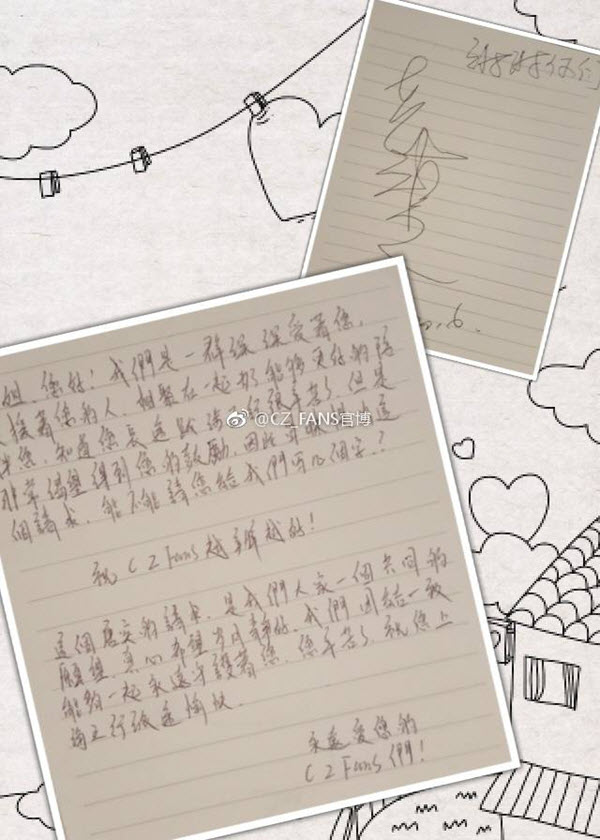 謝謝你们
6.
姐,您好!我們是一群深深愛著您,
著您的人,相聚在一起 能够更好的陪
伴您,知道您長途跋 很辛苦了,但是
非常渴望得到您的鼓勵,因此 這
個請求,能不能請您給我們寫几個字??
@CZ_FANS官博
祝CZFans越辦越好!
這個唐突的請求,是我們大家一個共同的
願望,真心希望歲月靜好,我們團结一致
能夠一起永遠守護著您,您辛苦了,祝您上
海之行旅途愉快.
永遠愛您的
CZFans們!